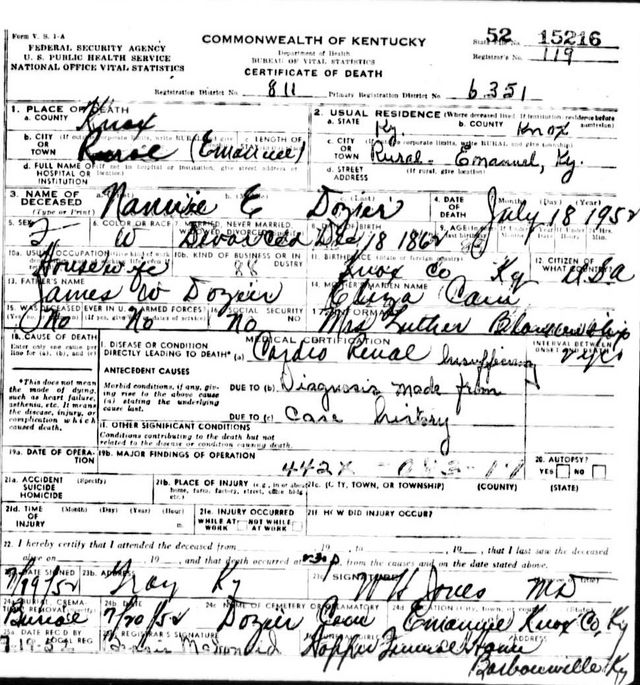 Form V. S. 1-A
FEDERAL SECURITY AGENCY
U. S. PUBLIC HEALTH SERVICE
NATIONAL OFFICE VITAL STATISTICS
COMMONWEALTH OF KENTUCKY
Department of Health
BUREAU OF VITAL STATISTICS
CERTIFICATE OF DEATH
52 15216
State File No.
Registrar's No. 119
Registration District No. 811 Primary Registration District No. 6351
1. PLACE OF DEATH
a. COUNTY Knox
b. CITY OR TOWN Rural (Emanuel) c. LENGTH OF
d. FULL NAME OF HOSPITAL OR INSTITUTION
2. USUAL RESIDENCE (Where deceased lived. If institution: residence before
a. STATE Ky. b. COUNTY Knox
c. CITY OR TOWN Rural - Emanuel, Ky.
d. STREET ADDRESS (If rural, give location)
3. NAME OF DECEASED (Type or Print) Nannie E Dozier
4. DATE OF DEATH (Month) (Day) (Year) July 18 1952
5. SEX F 6. COLOR OR RACE W 7. MARRIED, NEVER MARRIED Divorced Dec 18 1862
10a. USUAL OCCUPATION Housewife 10b. KIND OF BUSINESS OR INDUSTRY 88 11. BIRTHPLACE Knox Co Ky 12. CITIZEN OF WHAT COUNTRY? USA
13. FATHER'S NAME James W Dozier 14. MOTHER'S MAIDEN NAME Eliza Cain
15. WAS DECEASED EVER IN U. S. ARMED FORCES? No No SOCIAL SECURITY No Mrs Luther Blankenship
18. CAUSE OF DEATH
Enter only one cause per line for (a), (b), and (c)
MEDICAL CERTIFICATION
I. DISEASE OR CONDITION DIRECTLY LEADING TO DEATH* (a) Cardio Renal Insufficiency
INTERVAL BETWEEN ONSET
*This does not mean the mode of dying, such as heart failure, asthenia, etc. It means the disease, injury, or complication which caused death.
ANTECEDENT CAUSES
Morbid conditions, if any, giving rise to the above cause (a) stating the underlying cause last.
DUE TO (b) Diagnosis made from
DUE TO (c) Case history
II. OTHER SIGNIFICANT CONDITIONS
Conditions contributing to the death but not related to the disease or condition causing death.
19a. DATE OF OPERATION 19b. MAJOR FINDINGS OF OPERATION 442X
20. AUTOPSY? YES NO
21a. ACCIDENT SUICIDE HOMICIDE 21b. PLACE OF INJURY (e.g., in or about home, farm, factory, street, office bldg., etc.) 21c. (CITY, TOWN, OR TOWNSHIP) (COUNTY) (STATE)
21d. TIME OF INJURY (Month) (Day) (Year) (Hour) m 21e. INJURY OCCURRED WHILE AT WORK NOT WHILE AT WORK 21f. HOW DID INJURY OCCUR?
22. I hereby certify that I attended the deceased from , 19 , to , 19 , that I last saw the deceased
alive on , 19 , and that death occurred at m., from the causes and on the date stated above.
DATE SIGNED 7/29/52 23b. ADDRESS Gray Ky SIGNATURE W H Jones MD
24a. BURIAL, CREMATION, REMOVAL Burial 24b. DATE 7/20/52 24c. NAME OF CEMETERY OR CREMATORY Dozier Cem Emanuel Knox Co, Ky
25a. DATE REC'D BY LOCAL REG REGISTRAR'S SIGNATURE Hopper Funeral Home ADDRESS
Barbourville Ky